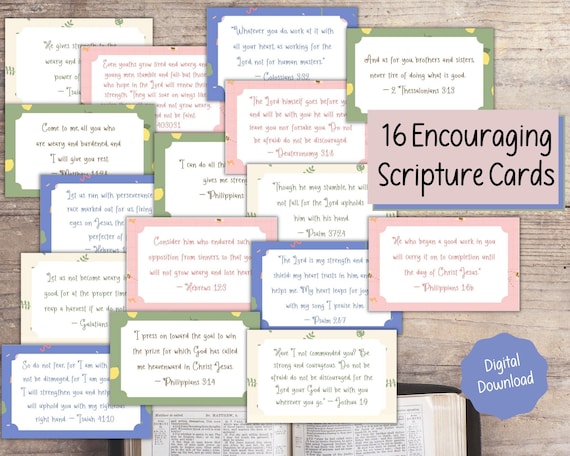 He gives strength to the
weary and
power of
— Isaia
Even youths grow tired and weary, and
young men stumble and fall but those
who hope in the Lord will renew their
strength. They will soar on wings like
not grow weary
and not be faint."
403031
"Whatever you do, work at it with
all your heart, as working for the
Lord, not for human masters."
— Colossians 3:32
And as for you, brothers and sisters,
never tire of doing what is good.
— 2 Thessalonians 3:13
Come to me, all you who
are weary and burdened, and
I will give you rest.
— Matthew 11:28
"I can do all th
gives me streng
— Philippians
"The Lord himself goes before you
and will be with you he will never
leave you nor forsake you. Do not
be afraid do not be discouraged."
— Deuteronomy 31:4
16 Encouraging
Scripture Cards
Let us run with perseverance
race marked out for us, fixing
eyes on Jesus, the
perfecter of
— Hebrews 12:
Though he may stumble, he will
not fall, for the Lord upholds
him with his hand.
— Psalm 37:24
Consider him who endured such
opposition from sinners, so that you
will not grow weary and lose hear
— Hebrews 12:3
"He who began a good work in you
will carry it on to completion until
the day of Christ Jesus."
— Philippians 1:6b
Let us not become weary in
good, for at the proper time
reap a harvest if we do no
— Galatians
"The Lord is my strength and my
shield; my heart trusts in him, and he
helps me. My heart leaps for joy, and
with my song I praise him.
— Psalm 28:7
"I press on toward the goal to win
the prize for which God has called
me heavenward in Christ Jesus.
— Philippians 3:14
So do not fear, for I am wi
not be dismayed, for I am y
I will strengthen you and help
will uphold you with my righteous
right hand. — Isaiah 41:10
Have I not commanded you? Be
strong and courageous. Do not be
afraid do not be discouraged, for
the Lord your God will be with you
wherever you go." — Joshua 1:9
Digital
Download